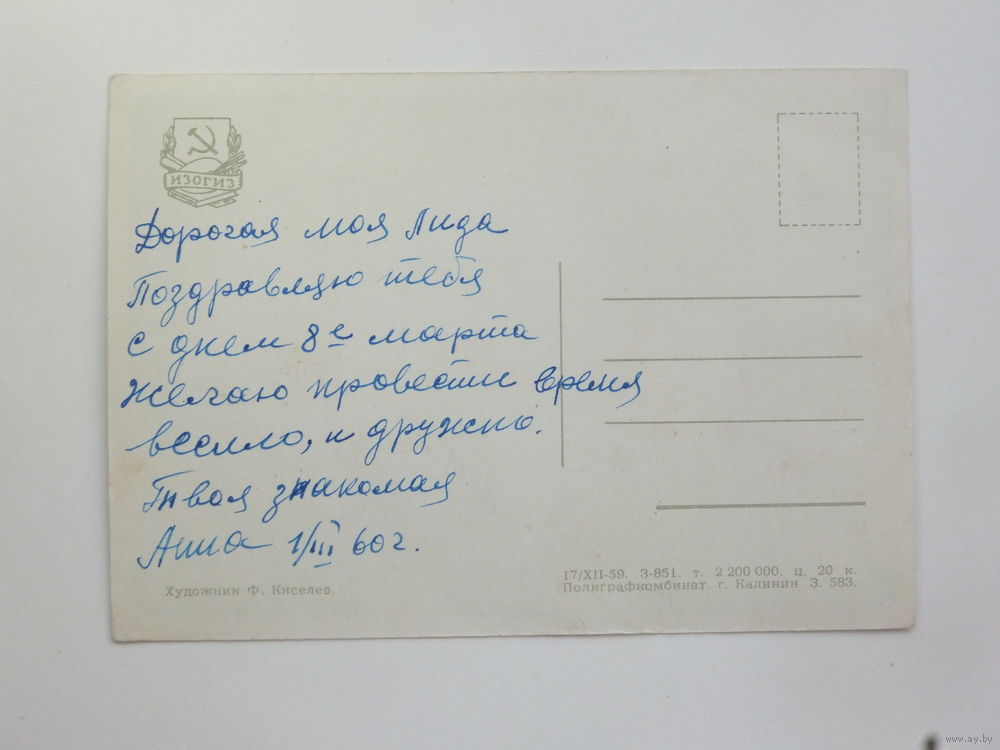 ИЗОГИЗ
Дорогая моя Лида
Поздравляю тебя
с днем 8е марта
Желаю провести время
весело, и дружно.
Твоя знакомая
Анна 1/III 60 г.
Художник Ф. Киселев.
17/XII-59. З-851. т. 2 200 000. ц. 20 к.
Полиграфкомбинат. г. Калинин. З. 583.
www.ay.by